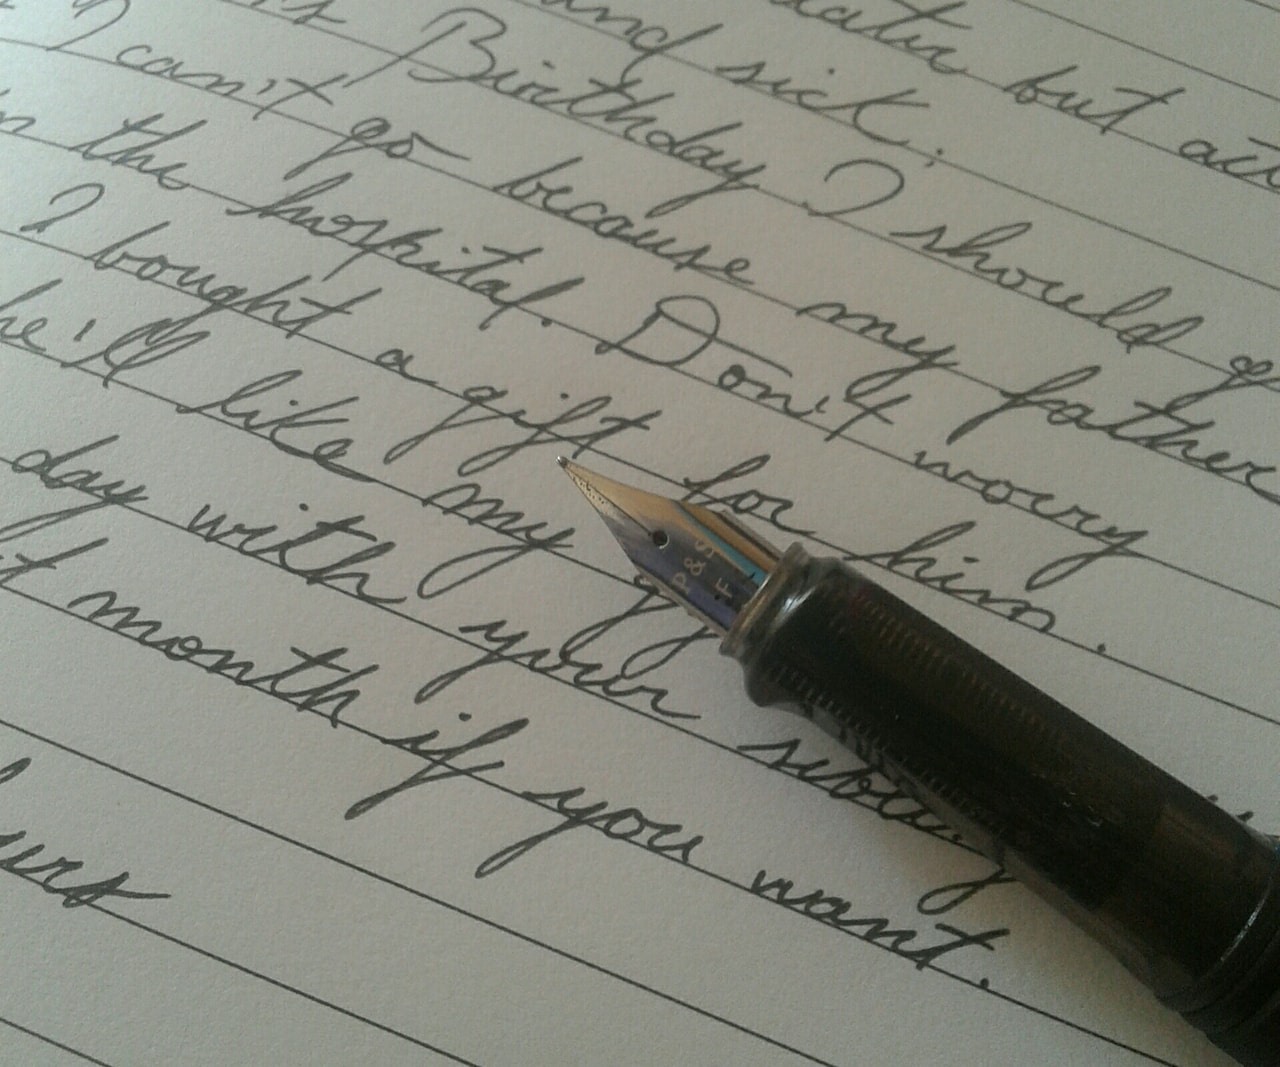 but
and sick.
Birthday I should
I can't go because my father
the hospital. Don't worry
I bought a gift for him.
he'll like my
day with your
month if you want.
P&S
F